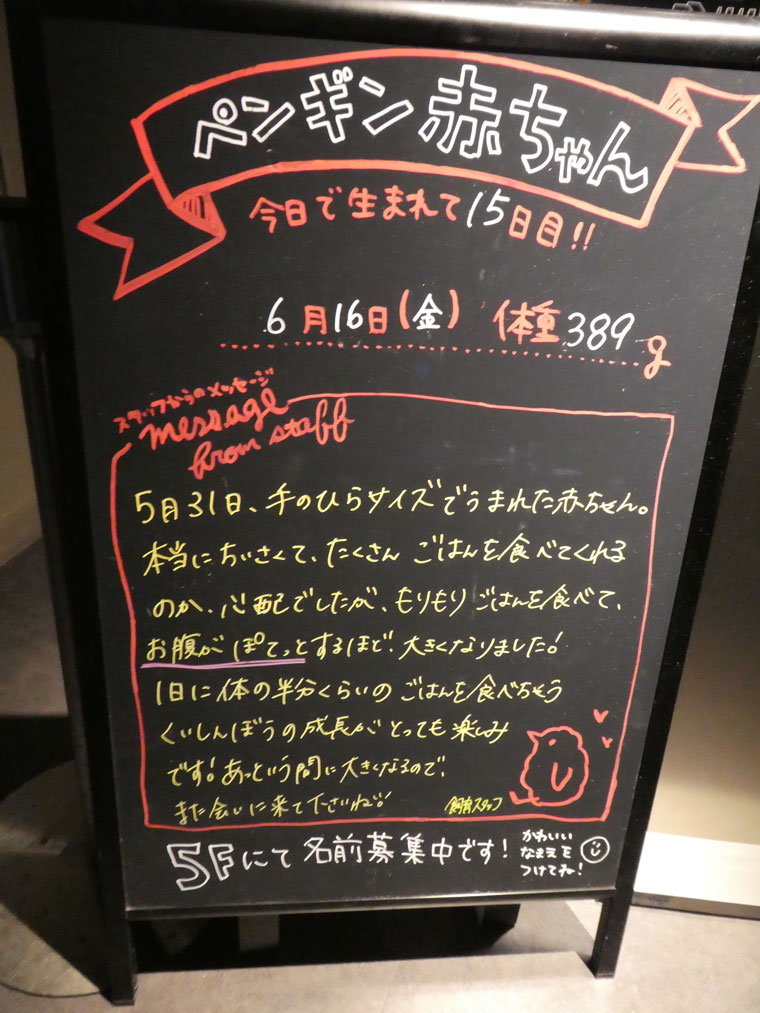 ペンギン赤ちゃん
今日で生まれて15日目!!
6月16日(金) 体重389g
スタッフからのメッセージ
message
from staff
5月31日、手のひらサイズでうまれた赤ちゃん。
本当にちいさくて、たくさんごはんを食べてくれる
のか、心配でしたが、もりもりごはんを食べて、
お腹がぽてっとするほど大きくなりました!
1日に体の半分くらいのごはんを食べちゃう
くいしんぼうの成長がとっても楽しみ
です!あっという間に大きくなるので、
また会いに来て下さいね!
飼育スタッフ
5Fにて名前募集中です!
かわいい
なまえを
つけてね!